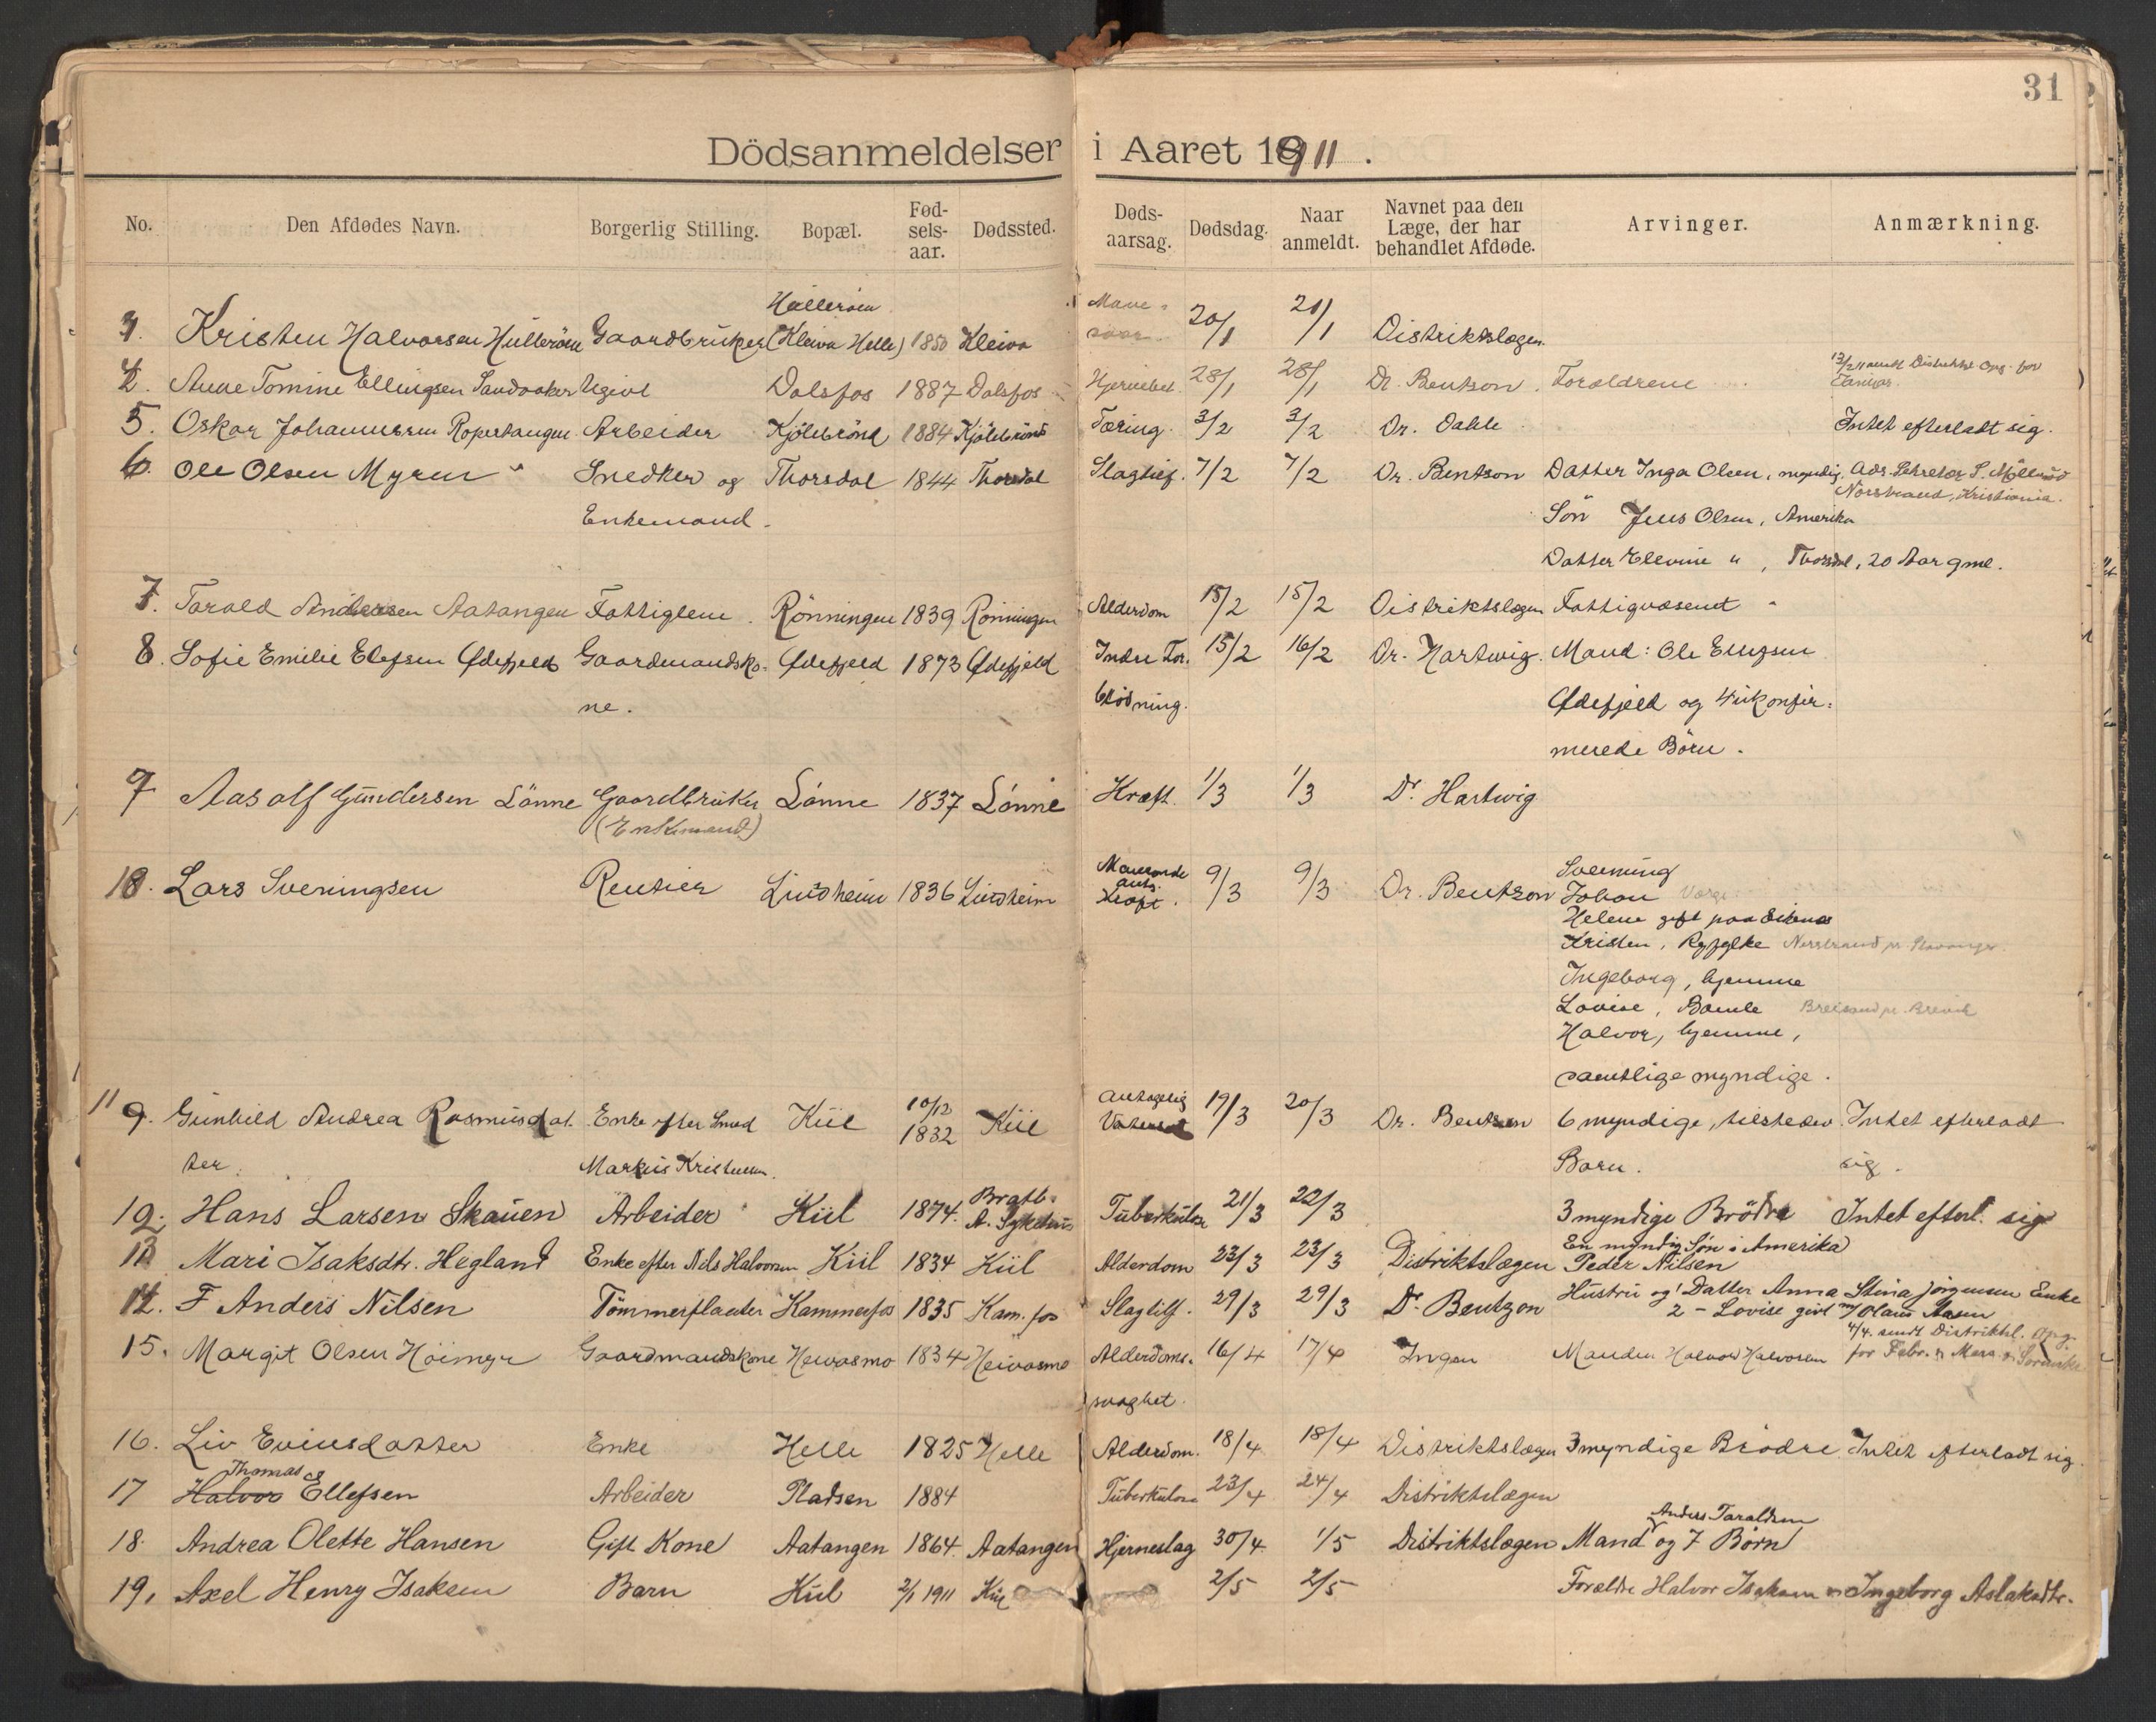 31
Dödsanmeldelser i Aaret 1911.
No. Den Afdødes Navn. Borgerlig Stilling. Bopæl. Fød-sels-aar. Dødssted. Døds-aarsag. Dødsdag. Naar anmeldt. Navnet paa den Læge, der har behandlet Afdøde. Arvinger. Anmærkning.
Hullerøen Mave-
3. Kristen Halvorsen Hullerøen Gaardbruker (Kleiva Helle) 1850 Kleiva 20/1 21/1 Distriktslægen
4. Anne Tomine Ellingsen Sandaaker Ugivt Dalsfos 1887 Dalsfos Hjernebet. 28/1 28/1 Dr. Bentzon. Forældrene
13/2 11 sendt Distriktsl. Opg. for
Januar.
5. Oskar Johannessen Ropertangen Arbeider Kjölebrönd 1884 Kjölebrönd Tæring. 3/2 3/2 Dr. Dahle Intet efterladt sig.
6. Ole Olsen Myren Snedker og Thorsdal 1844 Thorsdal Slagtilf. 7/2 7/2 Dr. Bentzon Datter Inga Olsen, myndig. Adr. Sekretær S. Möllerød
Norstrand, Kristiania.
Enkemand. Sön Jens Olsen, Amerika
Datter Elevine ", Thorsdal, 20 Aar gml.
7. Tarald Andersen Aatangen Fattiglem. Rönningen 1839 Rönningen Alderdom 15/2 15/2 Distriktslægen Fattigvæsenet
8. Sofie Emilie Elefsen Ödefjeld Gaardmandsko- Ödefjeld 1873 Ödefjeld Indre For. 15/2 16/2 Dr. Hartwig. Mand: Ole Ellefsen
ne. blödning. Ödefjeld og 4 ukonfir-
merede Börn.
9 Aasolf Gundersen Lönne Gaardbruker Lönne 1837 Lönne Kræft. 1/3 1/3 Dr. Hartwig
(Enkemand)
Svenning
10. Lars Sveningsen Rentier Lindheim 1836 Lindheim Maveonde ant. Kræft. 9/3 9/3 Dr. Bentzon Johan Værge
Helene gift paa Eikenes
Kristen, Ryfylke Nerstrand pr. Stavanger.
Ingeborg, hjemme
Lovise, Bamle Breisand pr. Brevik
Halvor, hjemme,
samtlige myndige.
11 9. Gunhild Andrea Rasmusdat- Enke efter Smed Kül 10/12 1832 Kül Antagelig 19/3 20/3 Dr. Bentzon 6 myndige, tilstedev. Intet efterladt
ter. Markus Kristensen. Barn. sig.
12. Hans Larsen Skauen Arbeider Kül 1874. Bratb- A. Sykehus Tuberkulose 21/3 22/3 3 myndige Brödre Intet efterl. sig
En myndig Sön i Amerika
13 Mari Isaksdtr. Hegland Enke efter Nils Halvorsen Kül 1834 Kül Alderdom 23/3 23/3 Distriktslægen Peder Nilsen
14. F Anders Nilsen Tömmerfløter Kammerfos 1835 Kam.fos Slagtilf. 29/3 29/3 Dr. Bentzon Hustru og 1 Datter Anna Stina Jörgensen Enke
2 - Lovise givt m/ Olaus Aasen
4/4. sendt Distriktsl. Opg.
15. Margit Olsen Höimyr Gaardmandskone Heivasmo 1834 Heivasmo Alderdoms- 16/4 17/4 Ingen Manden Halvor Halvorsen for Febr. & Mars
svaghet.
16. Liv Evensdatter Enke Helle 1825 Helle Alderdom. 18/4 18/4 Distriktslægen 3 myndige Brödre. Intet efterladt sig.
Thomas
17 Halvor Ellefsen Arbeider Pladsen 1884 Tuberkulose 23/4 24/4 Distriktslægen
Anders Taraldsen
18. Andrea Olette Hansen Gift Kone Aatangen 1864. Aatangen Hjerneslag 30/4 1/5 Distriktslægen Mand og 7 Börn
19. Axel Henry Isaksen Barn Kül 2/1 1911 Kül 2/5 2/5 Forældre Halvor Isaksen og Ingeborg Aslaksdtr.